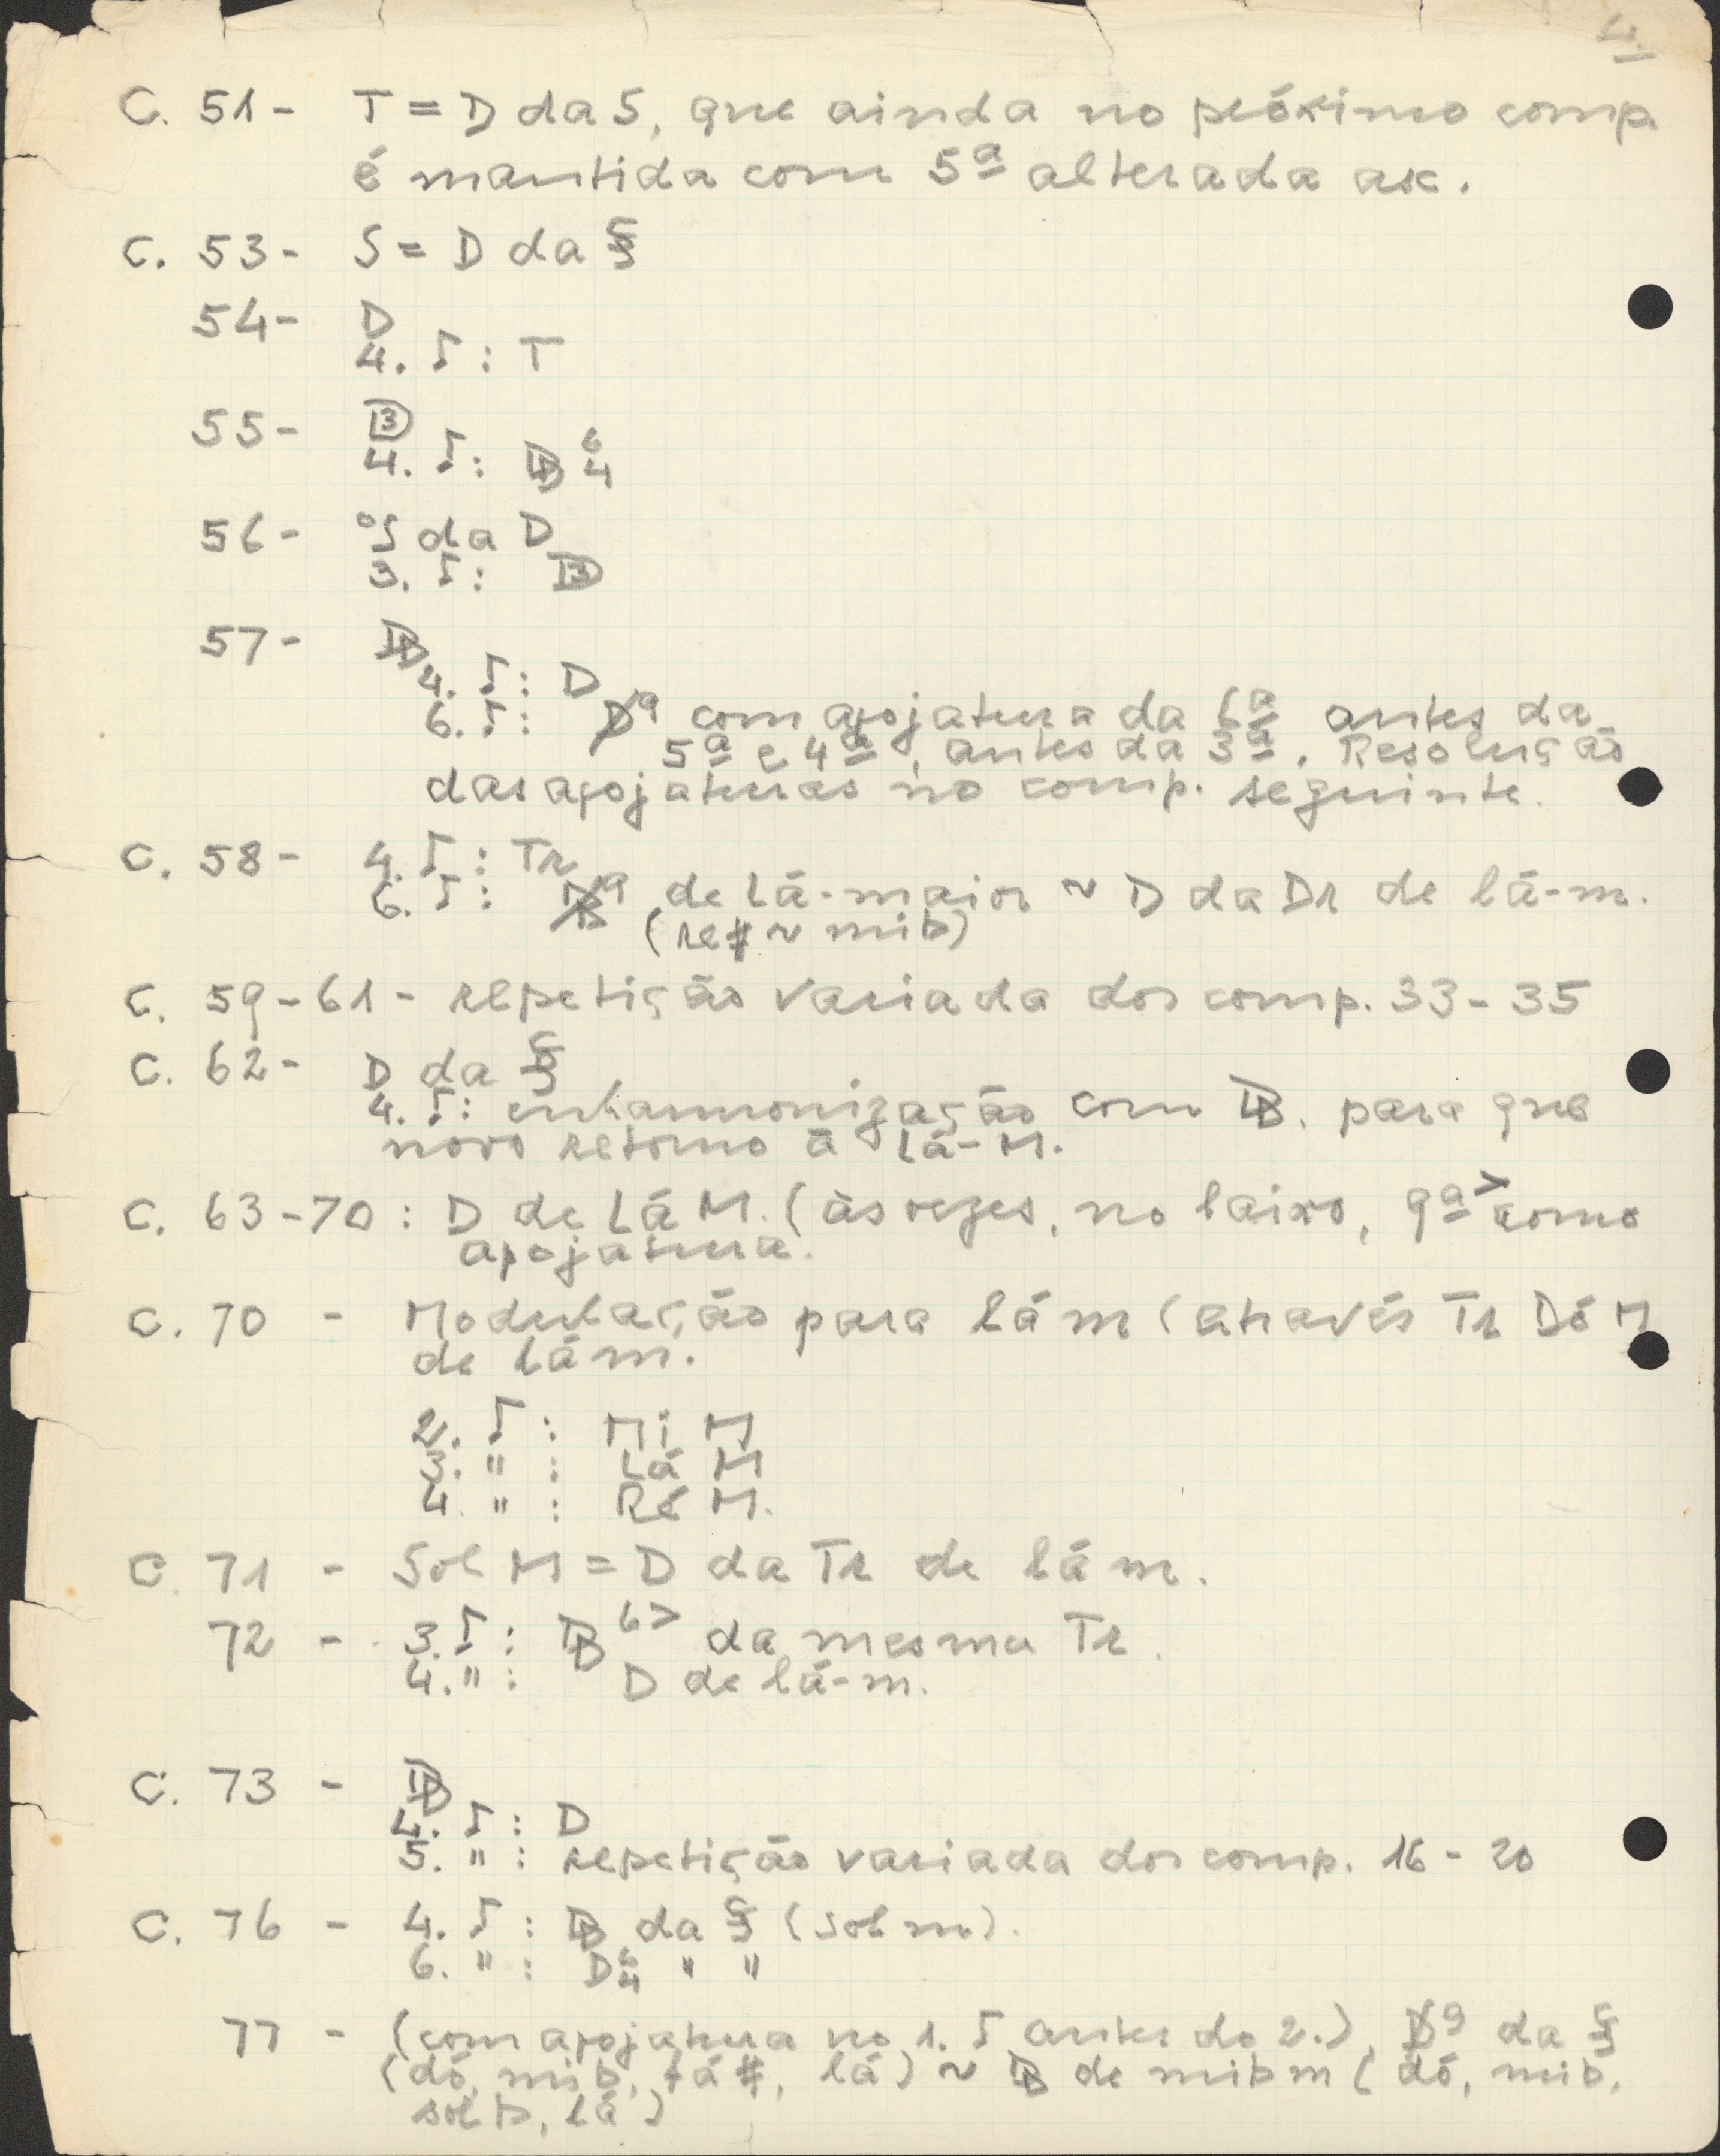 4.
C. 51 - T = D da S, que ainda no próximo comp.
é mantida com 5ª alterada asc.
C. 53 - S = D da
54 - D
4. ♪: T
55 - D
3
4. ♪: 6
4
56 - ºS da D
3. ♪:
57 -
4. ♪: D
6. ♪: D9 com apojatura da 6ª antes da
5ª e 4ª, antes da 3ª. Resolução
das apojaturas no comp. seguinte.
C. 58 - 4. ♪: Tr
6. ♪: 9 de Lá-maior ~ D da Dr de lá-m.
(re# ~ mib)
C. 59-61 - repetição variada dos comp. 33-35
C. 62 - D da
4. ♪: enharmonização com para
novo retorno à Lá-M.
C. 63-70: D de Lá M. (às vezes, no baixo, 9ª> como
apojatura.
C. 70 - Modulação para lá m (através Tr Dó M
de lá m.
2. ♪: Mi M
3. " : Lá M
4. " : Ré M.
C. 71 - Sol M = D da Tr de lá m.
72 - 3. ♪: 6> da mesma Tr.
4. " : D de lá-m.
C. 73 -
4. ♪: D
5. " : repetição variada dos comp. 16-20
C. 76 - 4. ♪: da (sol m).
6. " : D 6
4 " "
77 - (com apojatura no 1. ♪ antes do 2.), D9 da
(dó, mib, fá#, lá) ~ de mib m (dó, mib,
solb, lá)